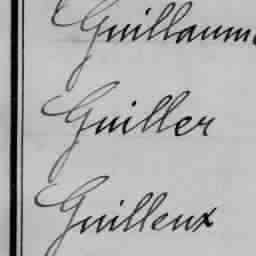 Guillaume
Guiller
Guilleux